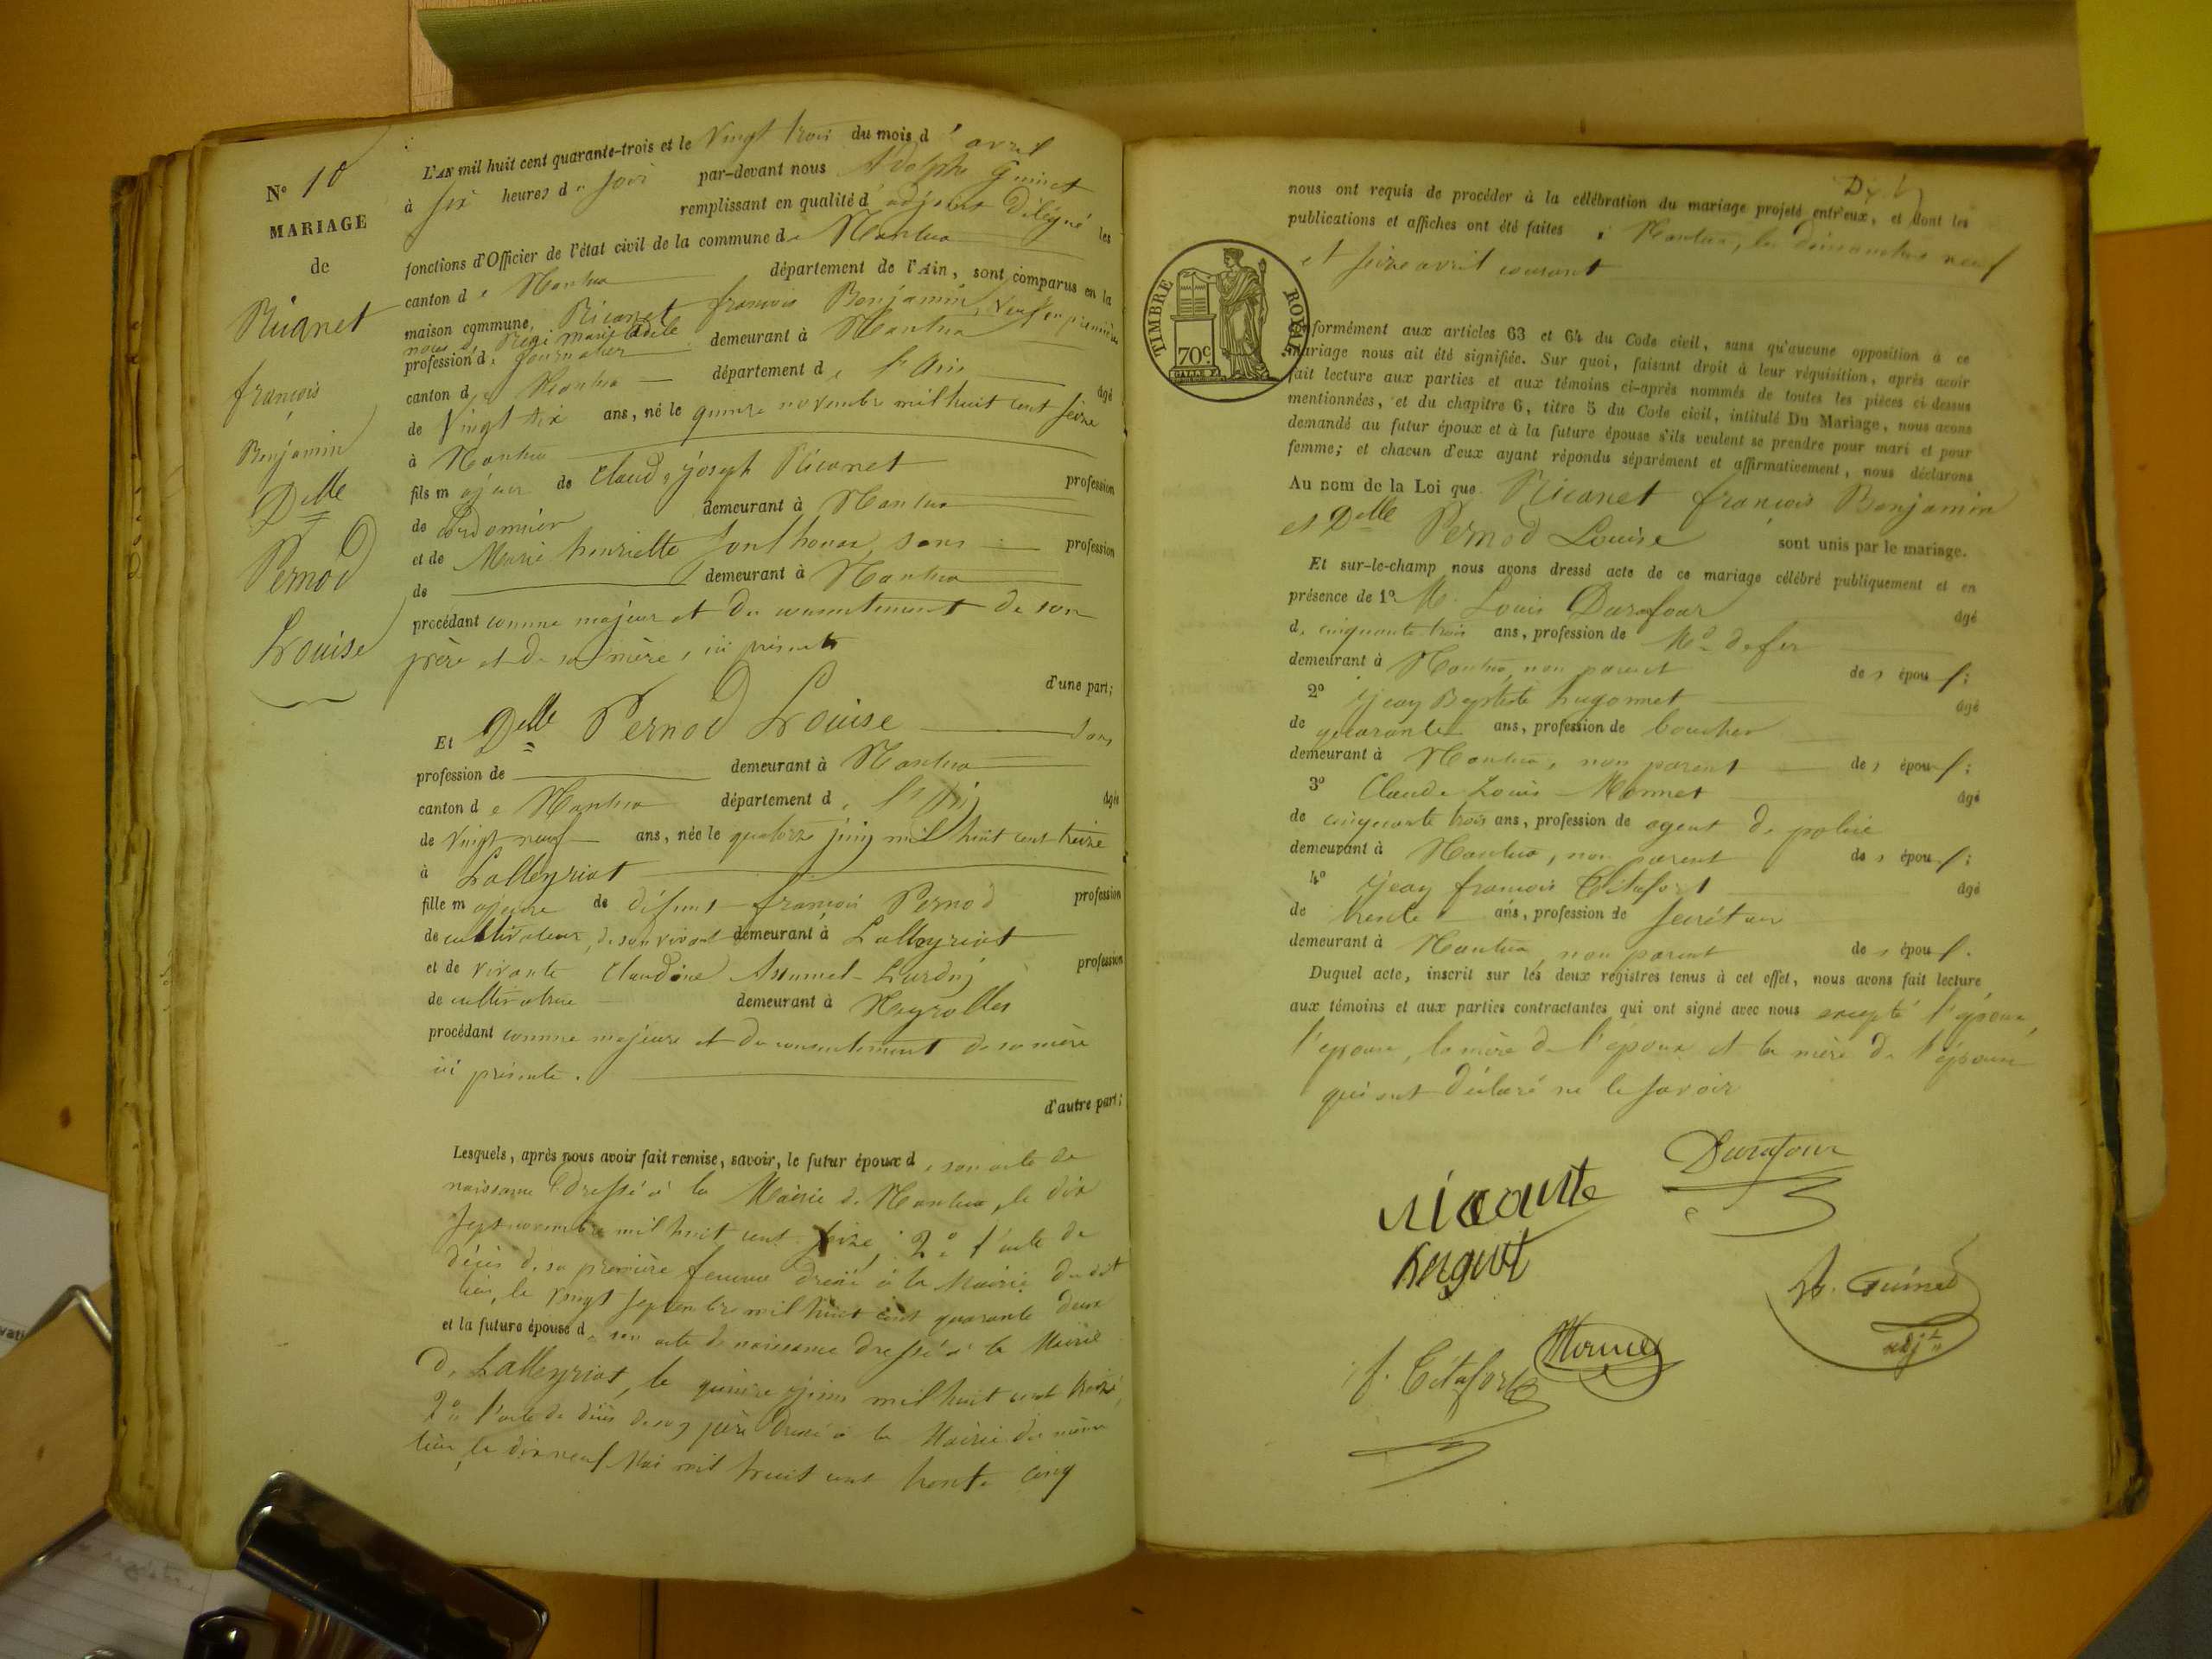 N° 10
MARIAGE
de
Ricanet
françois
Benjamin
Delle
Pernod
Louise
L'AN mil huit cent quarante-trois et le Vingt trois du mois d'avril
à six heures du soir par-devant nous Adolphe Guinet
remplissant en qualité d'adjoint Délégué les
fonctions d'Officier de l'état civil de la commune de Nantua
canton de Nantua département de l'Ain, sont comparus en la
maison commune, Ricanet françois Benjamin, veuf en premières
noces de marie adèle
profession de journalier demeurant à Nantua
canton de Nantua département de l'Ain âgé
de Vingt six ans, né le quinze novembre mil huit cent seize
à Nantua
fils majeur de Claude joseph Ricanet profession
de Cordonnier demeurant à Nantua
et de Marie henriette sans profession
de demeurant à Nantua
procédant comme majeur et du consentement de son
père et de sa mère, ici présents
d'une part;
Et Delle Pernod Louise sans
profession de demeurant à Nantua
canton de Nantua département de l'Ain âgée
de Vingt neuf ans, née le quatorze juin mil huit cent treize
à Lalleyriat
fille majeure de défunt françois Pernod profession
de cultivateur, de son vivant demeurant à Lalleyriat
et de vivante Claudine Assumel-Lurdin profession
de cultivatrice demeurant à Neyrolles
procédant comme majeure et du consentement de sa mère
ici présente.
d'autre part;
Lesquels, après nous avoir fait remise, savoir, le futur époux de son acte de
naissance Dressé à la Mairie de Nantua, le dix
sept novembre mil huit cent seize; 2° l'acte de
décès de sa première femme dressé à la Mairie du dit
lieu, le vingt septembre mil huit cent quarante deux
et la future épouse de son acte de naissance dressé à la Mairie
de Lalleyriat, le quinze juin mil huit cent treize,
2° l'acte de décès de son père Dressé à la Mairie du même
lieu, le dix neuf Mai mil huit cent trente cinq
nous ont requis de procéder à la célébration du mariage projeté entr'eux, et dont les
publications et affiches ont été faites à Nantua, les dimanches neuf
et seize avril courant
TIMBRE ROYAL
70c
conformément aux articles 63 et 64 du Code civil, sans qu'aucune opposition à ce
mariage nous ait été signifiée. Sur quoi, faisant droit à leur réquisition, après avoir
fait lecture aux parties et aux témoins ci-après nommés de toutes les pièces ci-dessus
mentionnées, et du chapitre 6, titre 5 du Code civil, intitulé Du Mariage, nous avons
demandé au futur époux et à la future épouse s'ils veulent se prendre pour mari et pour
femme; et chacun d'eux ayant répondu séparément et affirmativement, nous déclarons
Au nom de la Loi que Ricanet françois Benjamin
et Delle Pernod Louise sont unis par le mariage.
Et sur-le-champ nous avons dressé acte de ce mariage célébré publiquement et en
présence de 1° M. Louis Durafour âgé
de cinquante trois ans, profession de Md de fer
demeurant à Nantua, non parent des époux;
2° jean Baptiste hugonnet âgé
de quarante ans, profession de boucher
demeurant à Nantua, non parent des époux;
3° Claude Louis Monnet âgé
de cinquante trois ans, profession de agent de police
demeurant à Nantua, non parent des époux;
4° jean françois Tétafort âgé
de trente ans, profession de Secrétaire
demeurant à Nantua, non parent des époux.
Duquel acte, inscrit sur les deux registres tenus à cet effet, nous avons fait lecture
aux témoins et aux parties contractantes qui ont signé avec nous excepté l'époux,
l'épouse, la mère de l'époux et la mère de l'épouse
qui ont déclaré ne le savoir
Durafour
A. Guinet
adjt
f. Tétafort